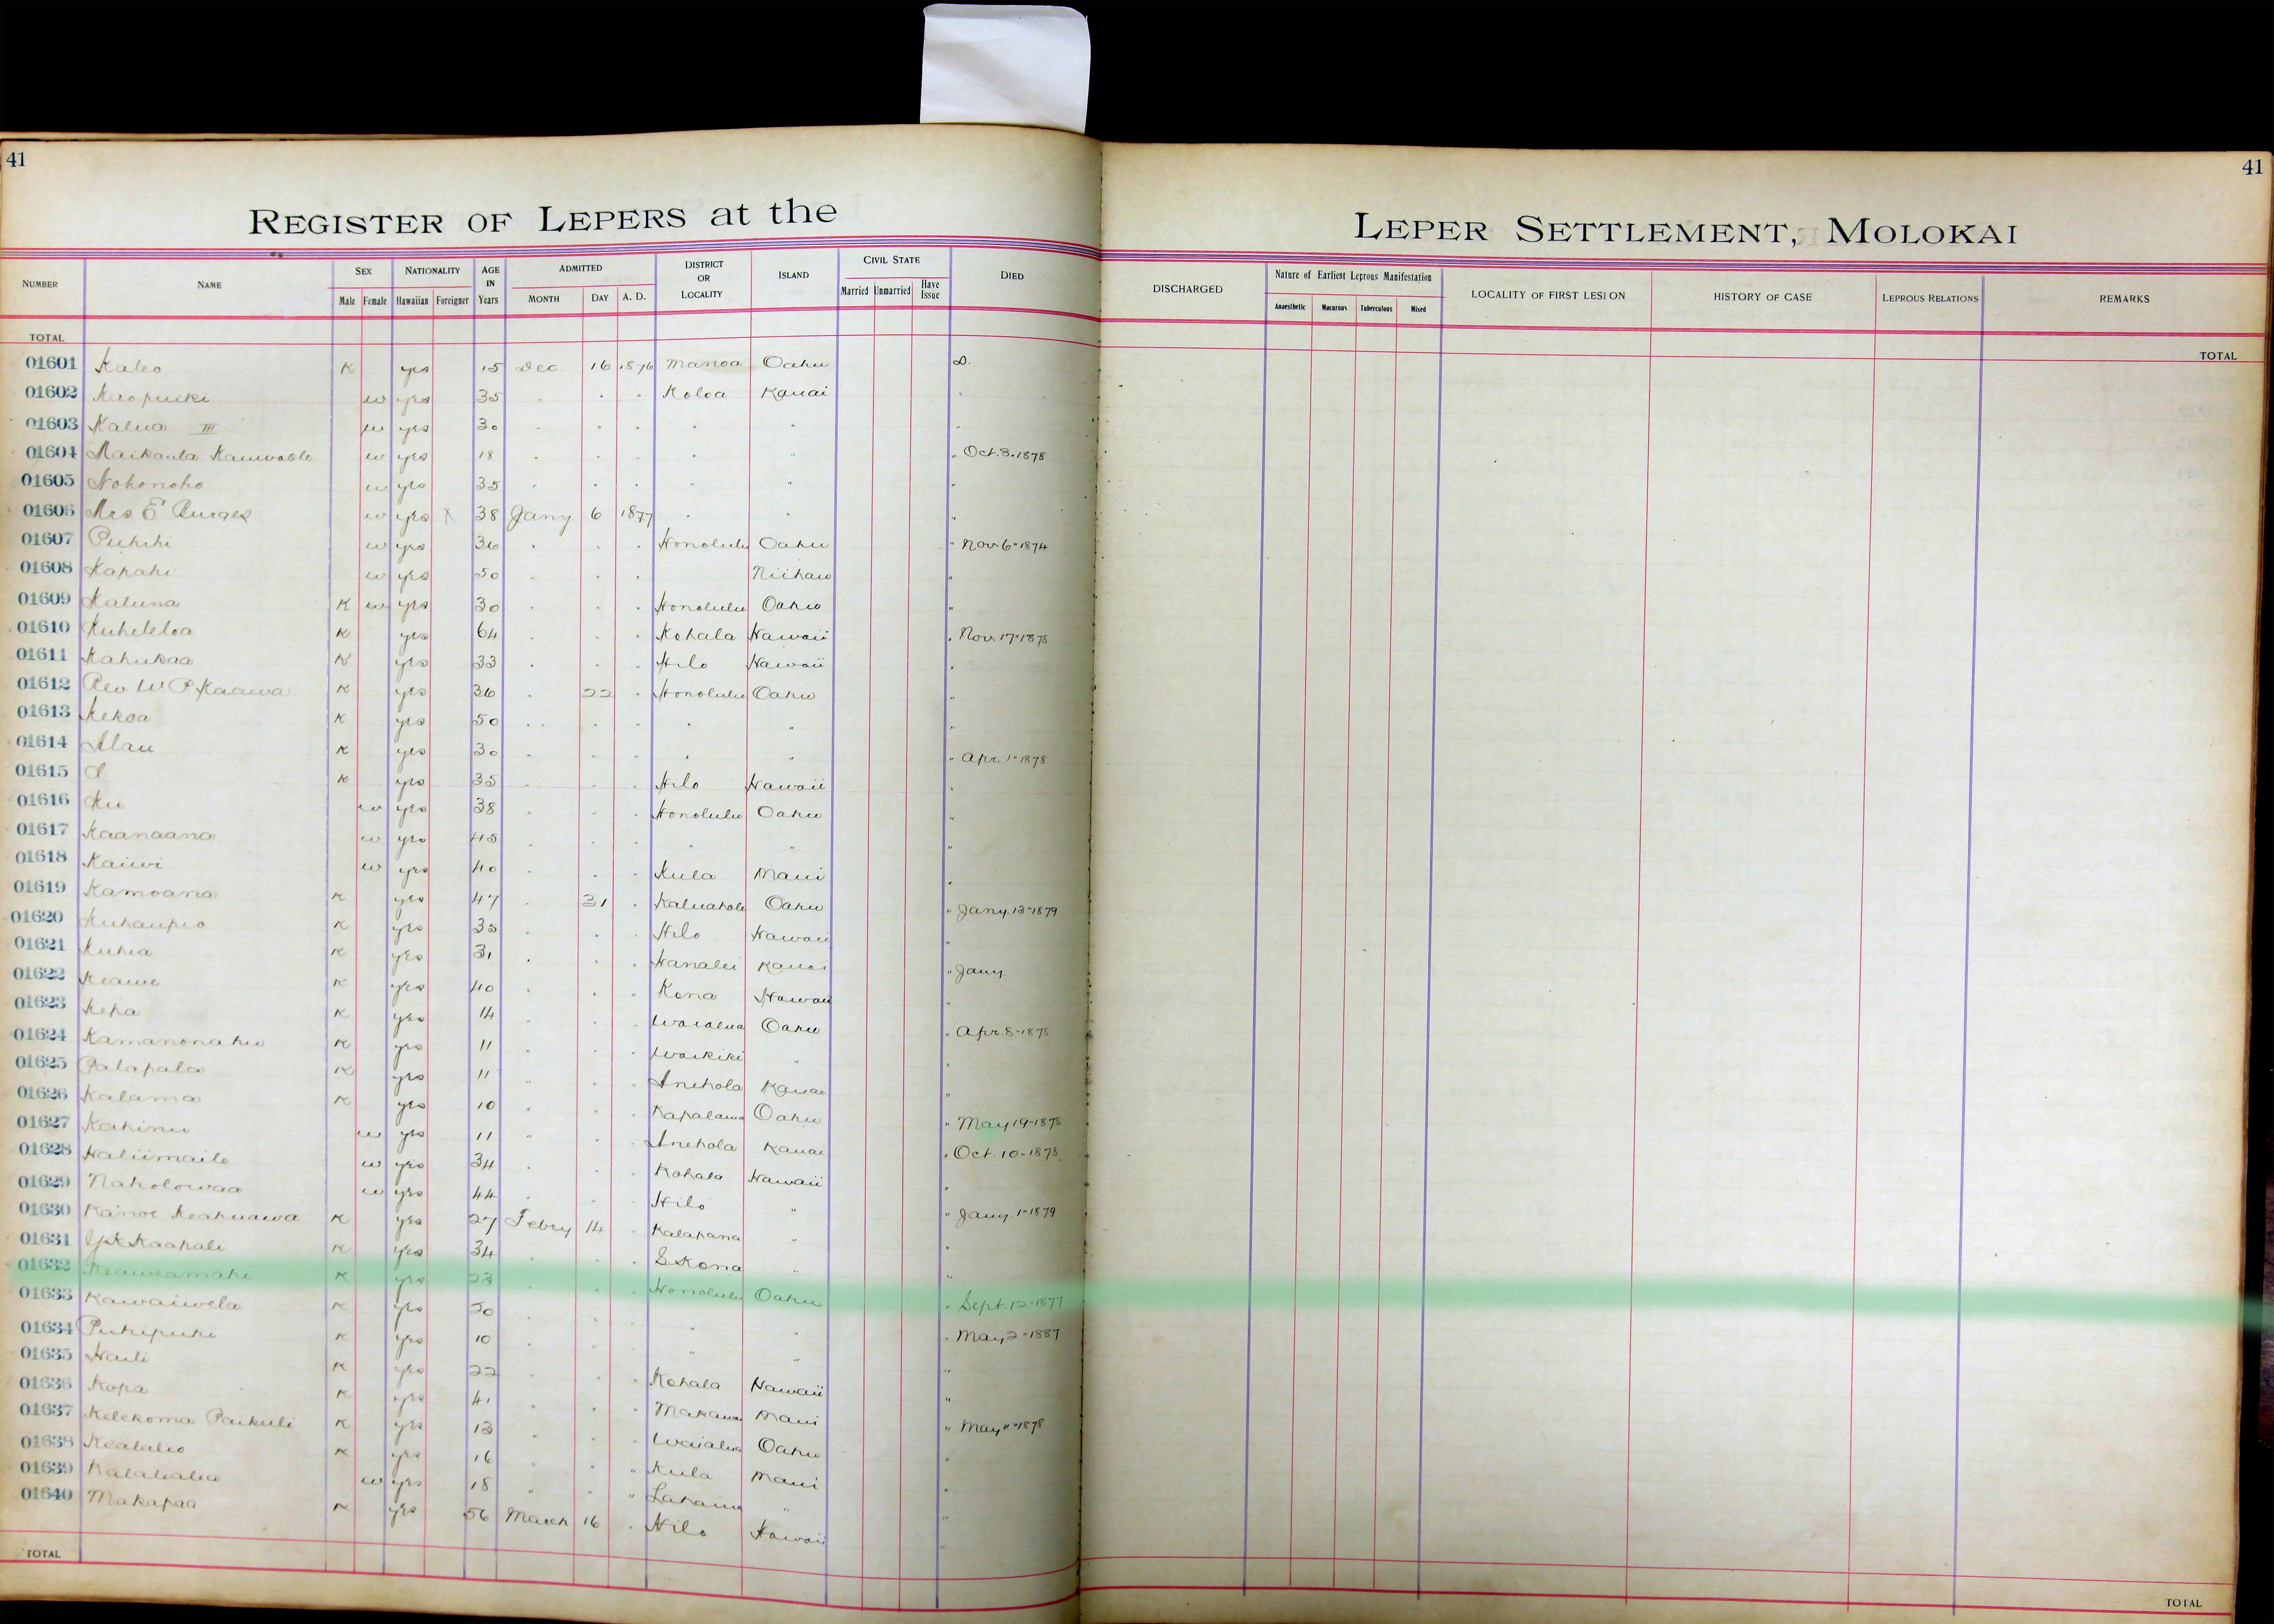 41
41
REGISTER OF LEPERS at the
LEPER SETTLEMENT, MOLOKAI
NUMBER NAME SEX Male Female NATIONALITY Hawaiian Foreigner AGE IN Years ADMITTED MONTH DAY A. D. DISTRICT OR LOCALITY ISLAND CIVIL STATE Married Unmarried Have Issue DIED
DISCHARGED Nature of Earliest Leprous Manifestation Anaesthetic Macurous Tuberculous Mixed LOCALITY OF FIRST LESION HISTORY OF CASE LEPROUS RELATIONS REMARKS
TOTAL
TOTAL
01601 Kaleo K yes 15 Dec. 16 1876 Manoa Oahu D.
01602 w yes 35 " " " Koloa Kauai "
01603 Kalua III w yes 30 " " " " " "
01604 w yes 18 " " " " " " Oct. 3. 1878
01605 Nohonoho w yes 35 " " " " " "
01606 Mrs E Burges w yes X 38 Jany 6 1877 " " "
01607 Puhihi w yes 36 " " " Honolulu Oahu " Nov. 6" 1874
01608 Kapahi w yes 50 " " " Niihau "
01609 Kaluna K w yes 30 " " " Honolulu Oahu "
01610 Kuheleloa K yes 64 " " " Kohala Hawaii " Nov. 17" 1878
01611 Kahukaa K yes 33 " " " Hilo Hawaii "
01612 Rev W. P. Kaawa K yes 36 " 22 " Honolulu Oahu "
01613 Kekoa K yes 50 " " " " " "
01614 Alau K yes 30 " " " " " " Apr. 1" 1878
01615 K yes 35 " " " Hilo Hawaii "
01616 Ku w yes 38 " " " Honolulu Oahu "
01617 Kaanaana w yes 45 " " " " " "
01618 Kaiwi w yes 40 " " " Kula Maui "
01619 Kamoana K yes 47 " 31 " Oahu " Jany. 13" 1879
01620 Kuhaupio K yes 35 " " " Hilo Hawaii "
01621 Kuhia K yes 31 " " " Hanalei Kauai " Jany.
01622 Keawe K yes 40 " " " Kona Hawaii "
01623 Kepa K yes 14 " " " Waialua Oahu " Apr. 8" 1878
01624 K yes 11 " " " Waikiki " "
01625 Palapala K yes 11 " " " Anehola Kauai "
01626 Kalama K yes 10 " " " Kapalama Oahu " May 19" 1878
01627 Kahinu w yes 11 " " " Anehola Kauai " Oct. 10" 1878
01628 Haliimaile w yes 34 " " " Kohala Hawaii "
01629 Naholowaa w yes 44 " " " Hilo " " Jany. 1" 1879
01630 Kanoe Keakuawa K yes 27 Febry 14 " Kalapana " "
01631 Kaahale K yes 34 " " " S Kona " "
01632 Keaweamahi K yes 23 " " " Honolulu Oahu " Sept. 12" 1877
01633 Kawaiwela K yes " " " " " " May 2" 1887
01634 Puhipuhi K yes 10 " " " " " "
01635 Haili K yes 22 " " " Kohala Hawaii "
01636 Kopa K yes 41 " " " Makawao Maui " May 11" 1878
01637 Kelekoma Paikuli K yes 13 " " " Waialua Oahu "
01638 Kealalio K yes 16 " " " Kula Maui "
01639 w yes 18 " " " Lahaina " "
01640 Makapaa K yes 56 March 16 " Hilo Hawaii "
TOTAL
TOTAL